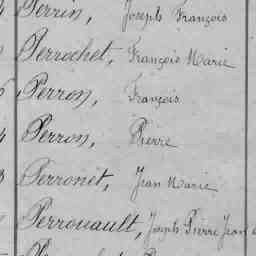 Perrin, Joseph François
Perrochet, François Marie
Perron, François
Perron, Pierre
Perronet, Jean Marie
Perrouault, Joseph Pierre Jean